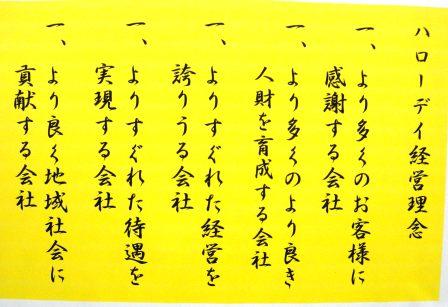 ハローデイ経営理念
一、より多くのお客様に
感謝する会社
一、より多くのより良き
人財を育成する会社
一、よりすぐれた経営を
誇りうる会社
一、よりすぐれた待遇を
実現する会社
一、より良く地域社会に
貢献する会社